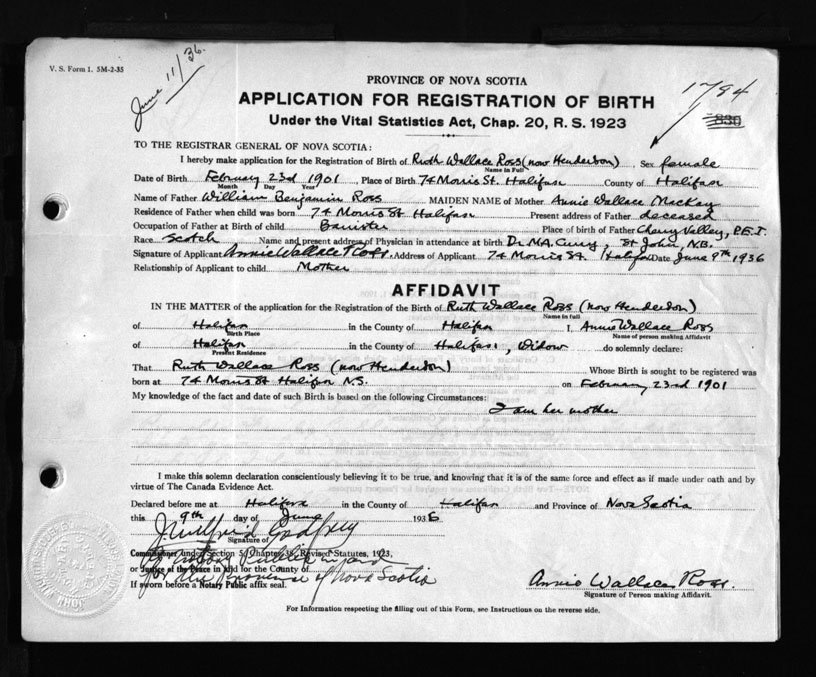 V. S. Form 1. 5M-2-35
June 11/36.
PROVINCE OF NOVA SCOTIA
1784
APPLICATION FOR REGISTRATION OF BIRTH
830
Under the Vital Statistics Act, Chap. 20, R. S. 1923
TO THE REGISTRAR GENERAL OF NOVA SCOTIA:
I hereby make application for the Registration of Birth of Ruth Wallace Ross (now Henderson), Sex female
Name in Full
Date of Birth February 23rd 1901, Place of Birth 74 Morris St. Halifax County of Halifax
Month Day Year
Name of Father William Benjamin Ross MAIDEN NAME of Mother Annie Wallace MacKay
Residence of Father when child was born 74 Morris St Halifax Present address of Father deceased
Occupation of Father at Birth of child Barrister Place of birth of Father Cherry Valley, P.E.I.
Race Scotch Name and present address of Physician in attendance at birth Dr. M.A. Curry, St John, N.B.
Signature of Applicant Annie Wallace Ross. Address of Applicant 74 Morris St. Halifax Date June 9th 1936
Relationship of Applicant to child Mother
AFFIDAVIT
IN THE MATTER of the application for the Registration of the Birth of Ruth Wallace Ross (now Henderson)
Name in full
of Halifax in the County of Halifax I, Annie Wallace Ross
Birth Place Name of person making Affidavit
of Halifax in the County of Halifax, Widow do solemnly declare:
Present Residence
That Ruth Wallace Ross (now Henderson) Whose Birth is sought to be registered was
born at 74 Morris St Halifax N.S. on February 23rd 1901
My knowledge of the fact and date of such Birth is based on the following Circumstances:
I am her mother
I make this solemn declaration conscientiously believing it to be true, and knowing that it is of the same force and effect as if made under oath and by
virtue of The Canada Evidence Act.
Declared before me at Halifax in the County of Halifax and Province of Nova Scotia
this 9th day of June 1936
Godfrey
Signature of
Commissioner under Section 50 Chapter 38, Revised Statutes, 1923,
A Notary Public in and
or Justice of the Peace in and for the County of
for the Province of Nova Scotia
If sworn before a Notary Public affix seal.
Annie Wallace Ross.
Signature of Person making Affidavit.
For Information respecting the filling out of this Form, see Instructions on the reverse side.